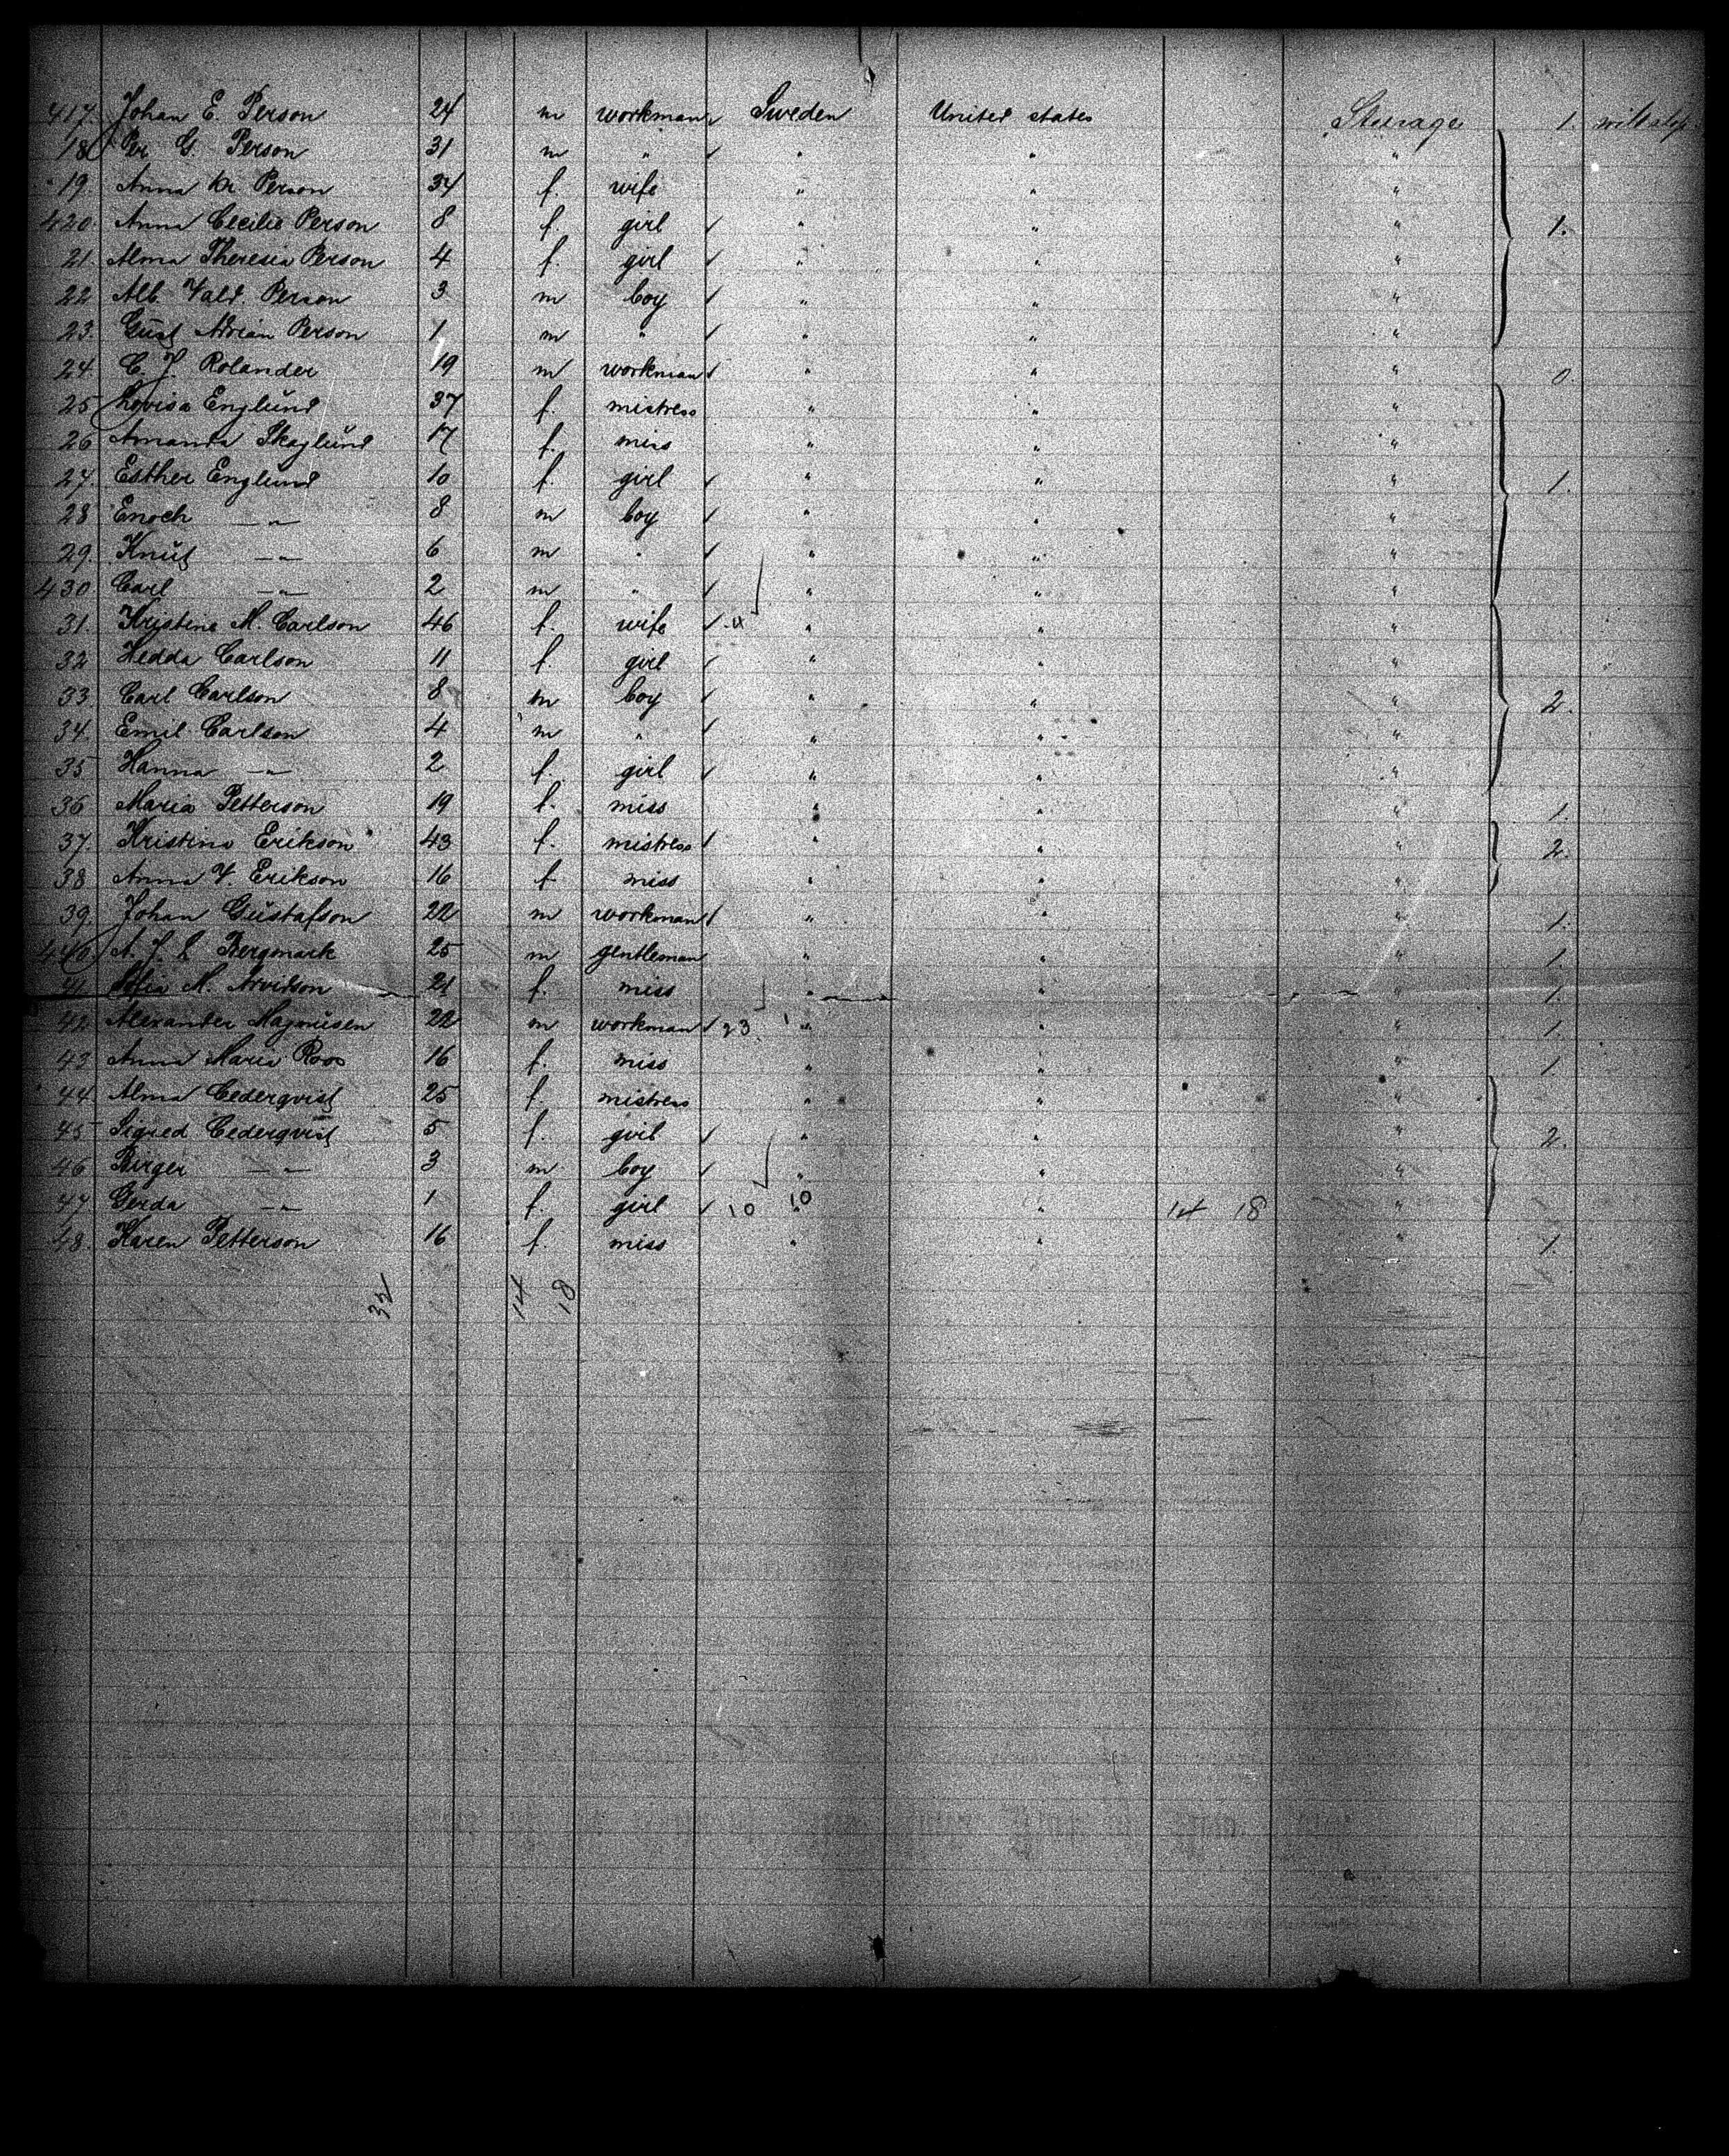 417. Johan E. Person 24 m workman Sweden United states Steerage 1. will stop
18 Per G. Person 31 m " " " "
19. Anna Kr. Person 34 f. wife " " "
420. Anna Cecilie Person 8 f. girl " " " 1.
21. Alma Theresia Person 4 f. girl " " "
22 Alb. Vald. Person 3 m boy " " "
23. Gust Adrian Person 1 m " " " "
24 C. J. Rolander 19 m workman " " " 0.
25 Lovisa Englund 37 f. mistress " " "
26 Amanda Skoglund 17 f. miss " " "
27. Esther Englund 10 f. girl " " " 1.
28 Enoch —"— 8 m boy " " "
29. Knut —"— 6 m " " " "
430 Carl —"— 2 m " " " "
31. Kristine M. Carlson 46 f. wife " " "
32 Hedda Carlson 11 f. girl " " "
33 Carl Carlson 8 m boy " " " 2.
34. Emil Carlson 4 m " " " "
35 Hanna —"— 2 f. girl " " "
36 Maria Petterson 19 f. miss " " " 1.
37. Kristina Erikson 43 f. mistress " " " 2.
38 Anna V. Erikson 16 f miss " " "
39. Johan Gustafson 22 m workman " " " 1.
440 A. J. L Bergmark 25 m gentleman " " " 1.
41. Sofia M. Arvidson 21 f. miss " " " 1.
42 Alexander Magnusen 22 m workman 23 " " " 1.
43 Anna Maria Roos 16 f. miss " " " 1
44. Alma Cederqvist 25 f. mistress " " "
45 Sigred Cederqvist 5 f. girl " " " 2.
46 Birger —"— 3 m boy " " "
47 Gerda —"— 1 f. girl 10 10 " " 14 18 "
48. Karen Petterson 16 f. miss " " " 1.
32 14 18